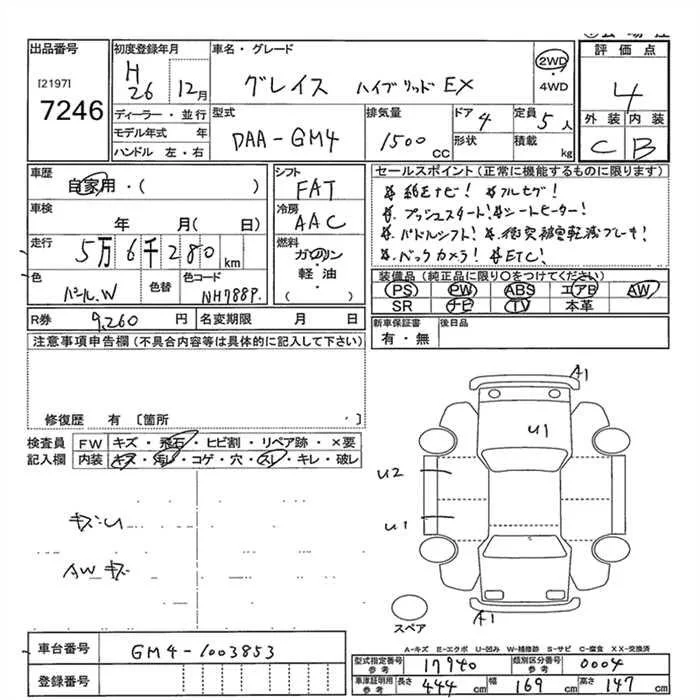 出品番号
[2197]
7246
初度登録年月
H
26
12月
車名・グレード
グレイス ハイブリッド EX
2WD
・
4WD
評価点
4
外装 内装
C B
ディーラー・並行
モデル年式 年
ハンドル 左・右
型式
DAA-GM4
排気量
1500
CC
ドア 4
形状
定員 5人
積載 kg
車歴
自家用・( )
車検
年 月(日)
走行
5万6千280km
色
パール.W
色替
色コード
NH788P.
シフト
FAT
冷房
AAC
燃料
ガソリン
軽・油
( )
セールスポイント(正常に機能するものに限ります)
純正ナビ! フルセグ!
プッシュスタート! シートヒーター!
パドルシフト! 衝突被害軽減ブレーキ!
バックカメラ! ETC!
装備品(純正品に限り○をつけてください)
PS PW ABS エアB AW
SR ナビ TV 本革
R券 9,260円
名変期限 月 日
新車保証書
有・無
後日品
注意事項申告欄(不具合内容等は具体的に記入して下さい)
修復歴 有 [箇所 ]
検査員
記入欄
FW キズ・飛石・ヒビ割・リペア跡・×要
内装 キズ・汚レ・コゲ・穴・スレ・キレ・破レ
キズ:U
AWキズ
A1
U1
U2
U1
A1
スペア
車台番号 GM4-1003853
登録番号
A-キズ E-エクボ U-凹み W-補修跡 S-サビ C-腐食 XX-交換済
型式指定番号 参考 17940
類別区分番号 参考 0004
車庫証明用 参考 長さ 444cm 幅 169cm 高さ 147cm